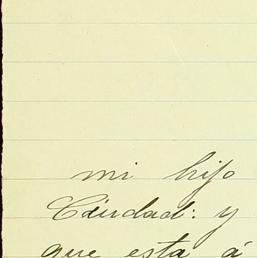 mi hijo
Ciudad: y
que esta á